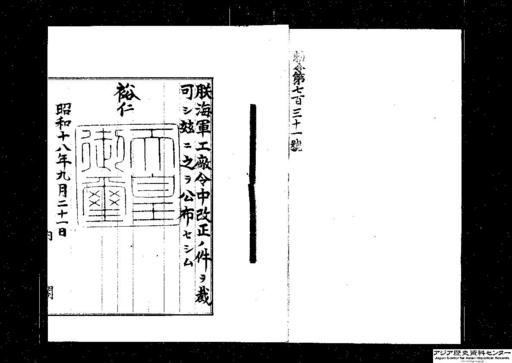 勅令第七百三十一號
朕海軍工廠令中改正ノ件ヲ裁
可シ玆ニ之ヲ公布セシム
裕仁
天皇
御璽
昭和十八年九月二十一日
内閣
アジア歴史資料センター
Japan Center for Asian Historical Records